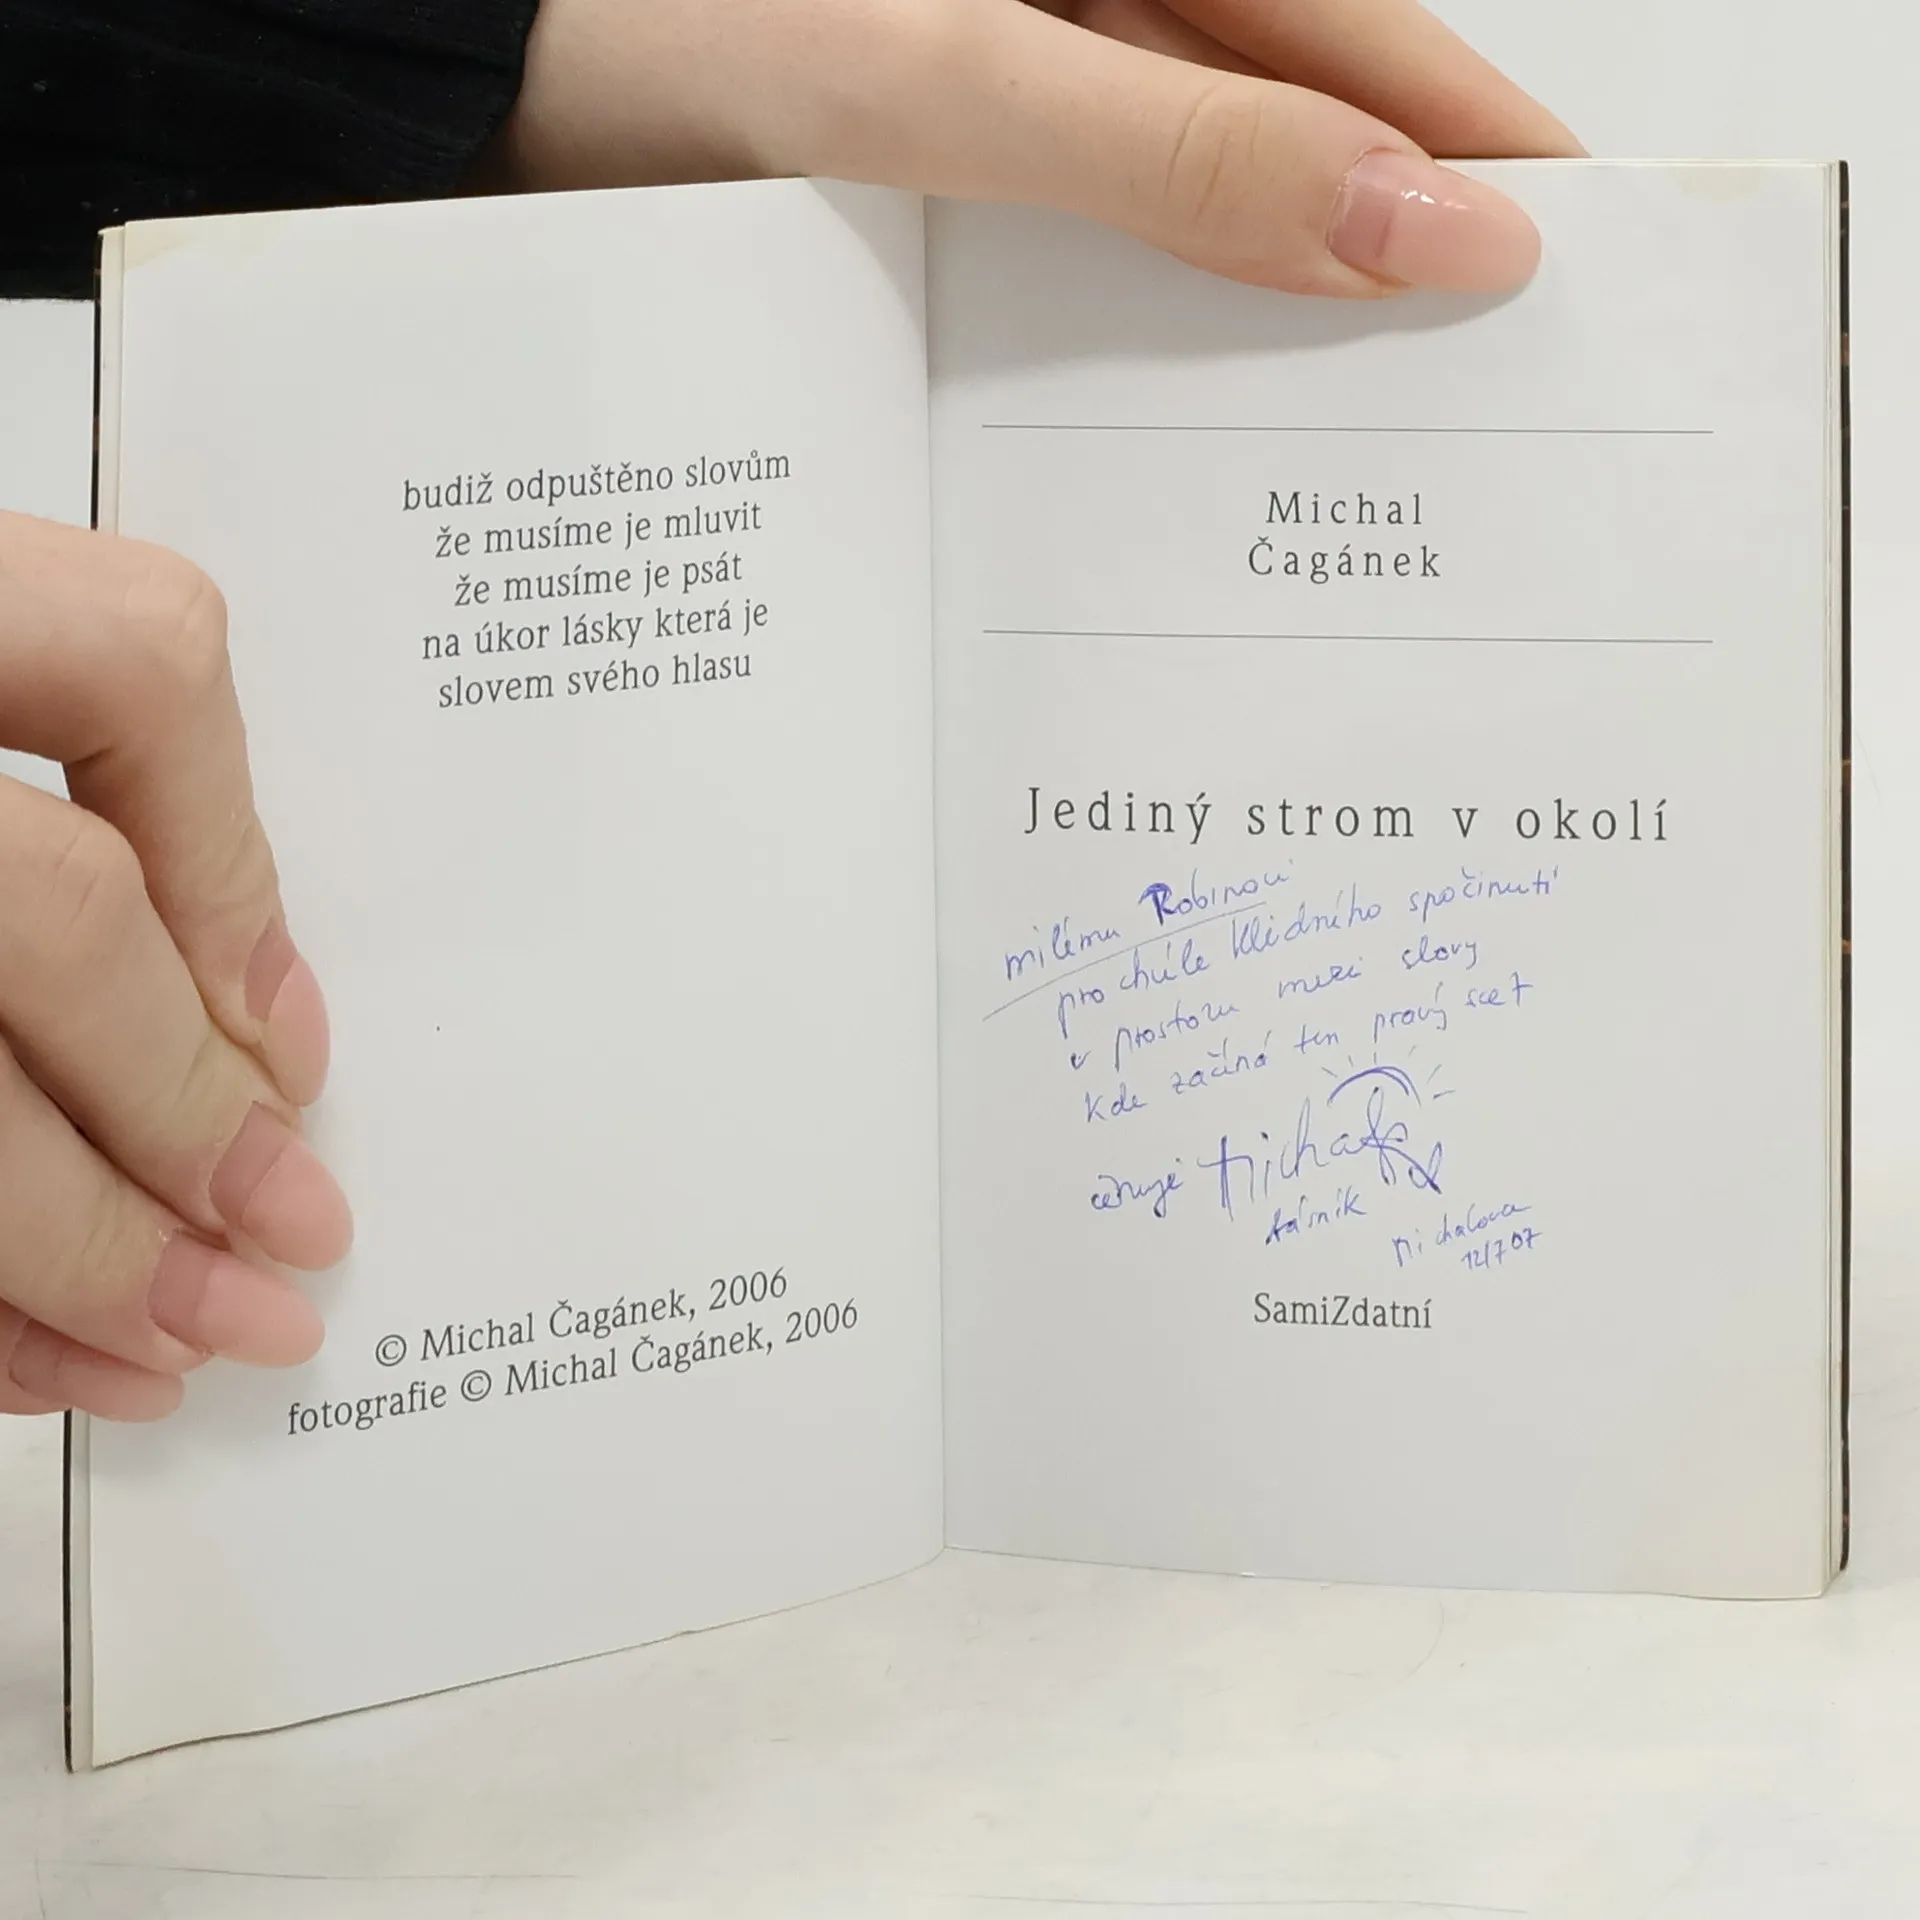 budiž odpuštěno slovům
že musíme je mluvit
že musíme je psát
na úkor lásky která je
slovem svého hlasu
© Michal Čagánek, 2006
fotografie © Michal Čagánek, 2006
Michal
Čagánek
Jediný strom v okolí
milému Robinovi
pro chvíle klidného spočinutí
v prostoru mezi slovy
kde začíná ten pravý svět
věnuje Michal
básník
Michalova
12/7 07
SamiZdatní